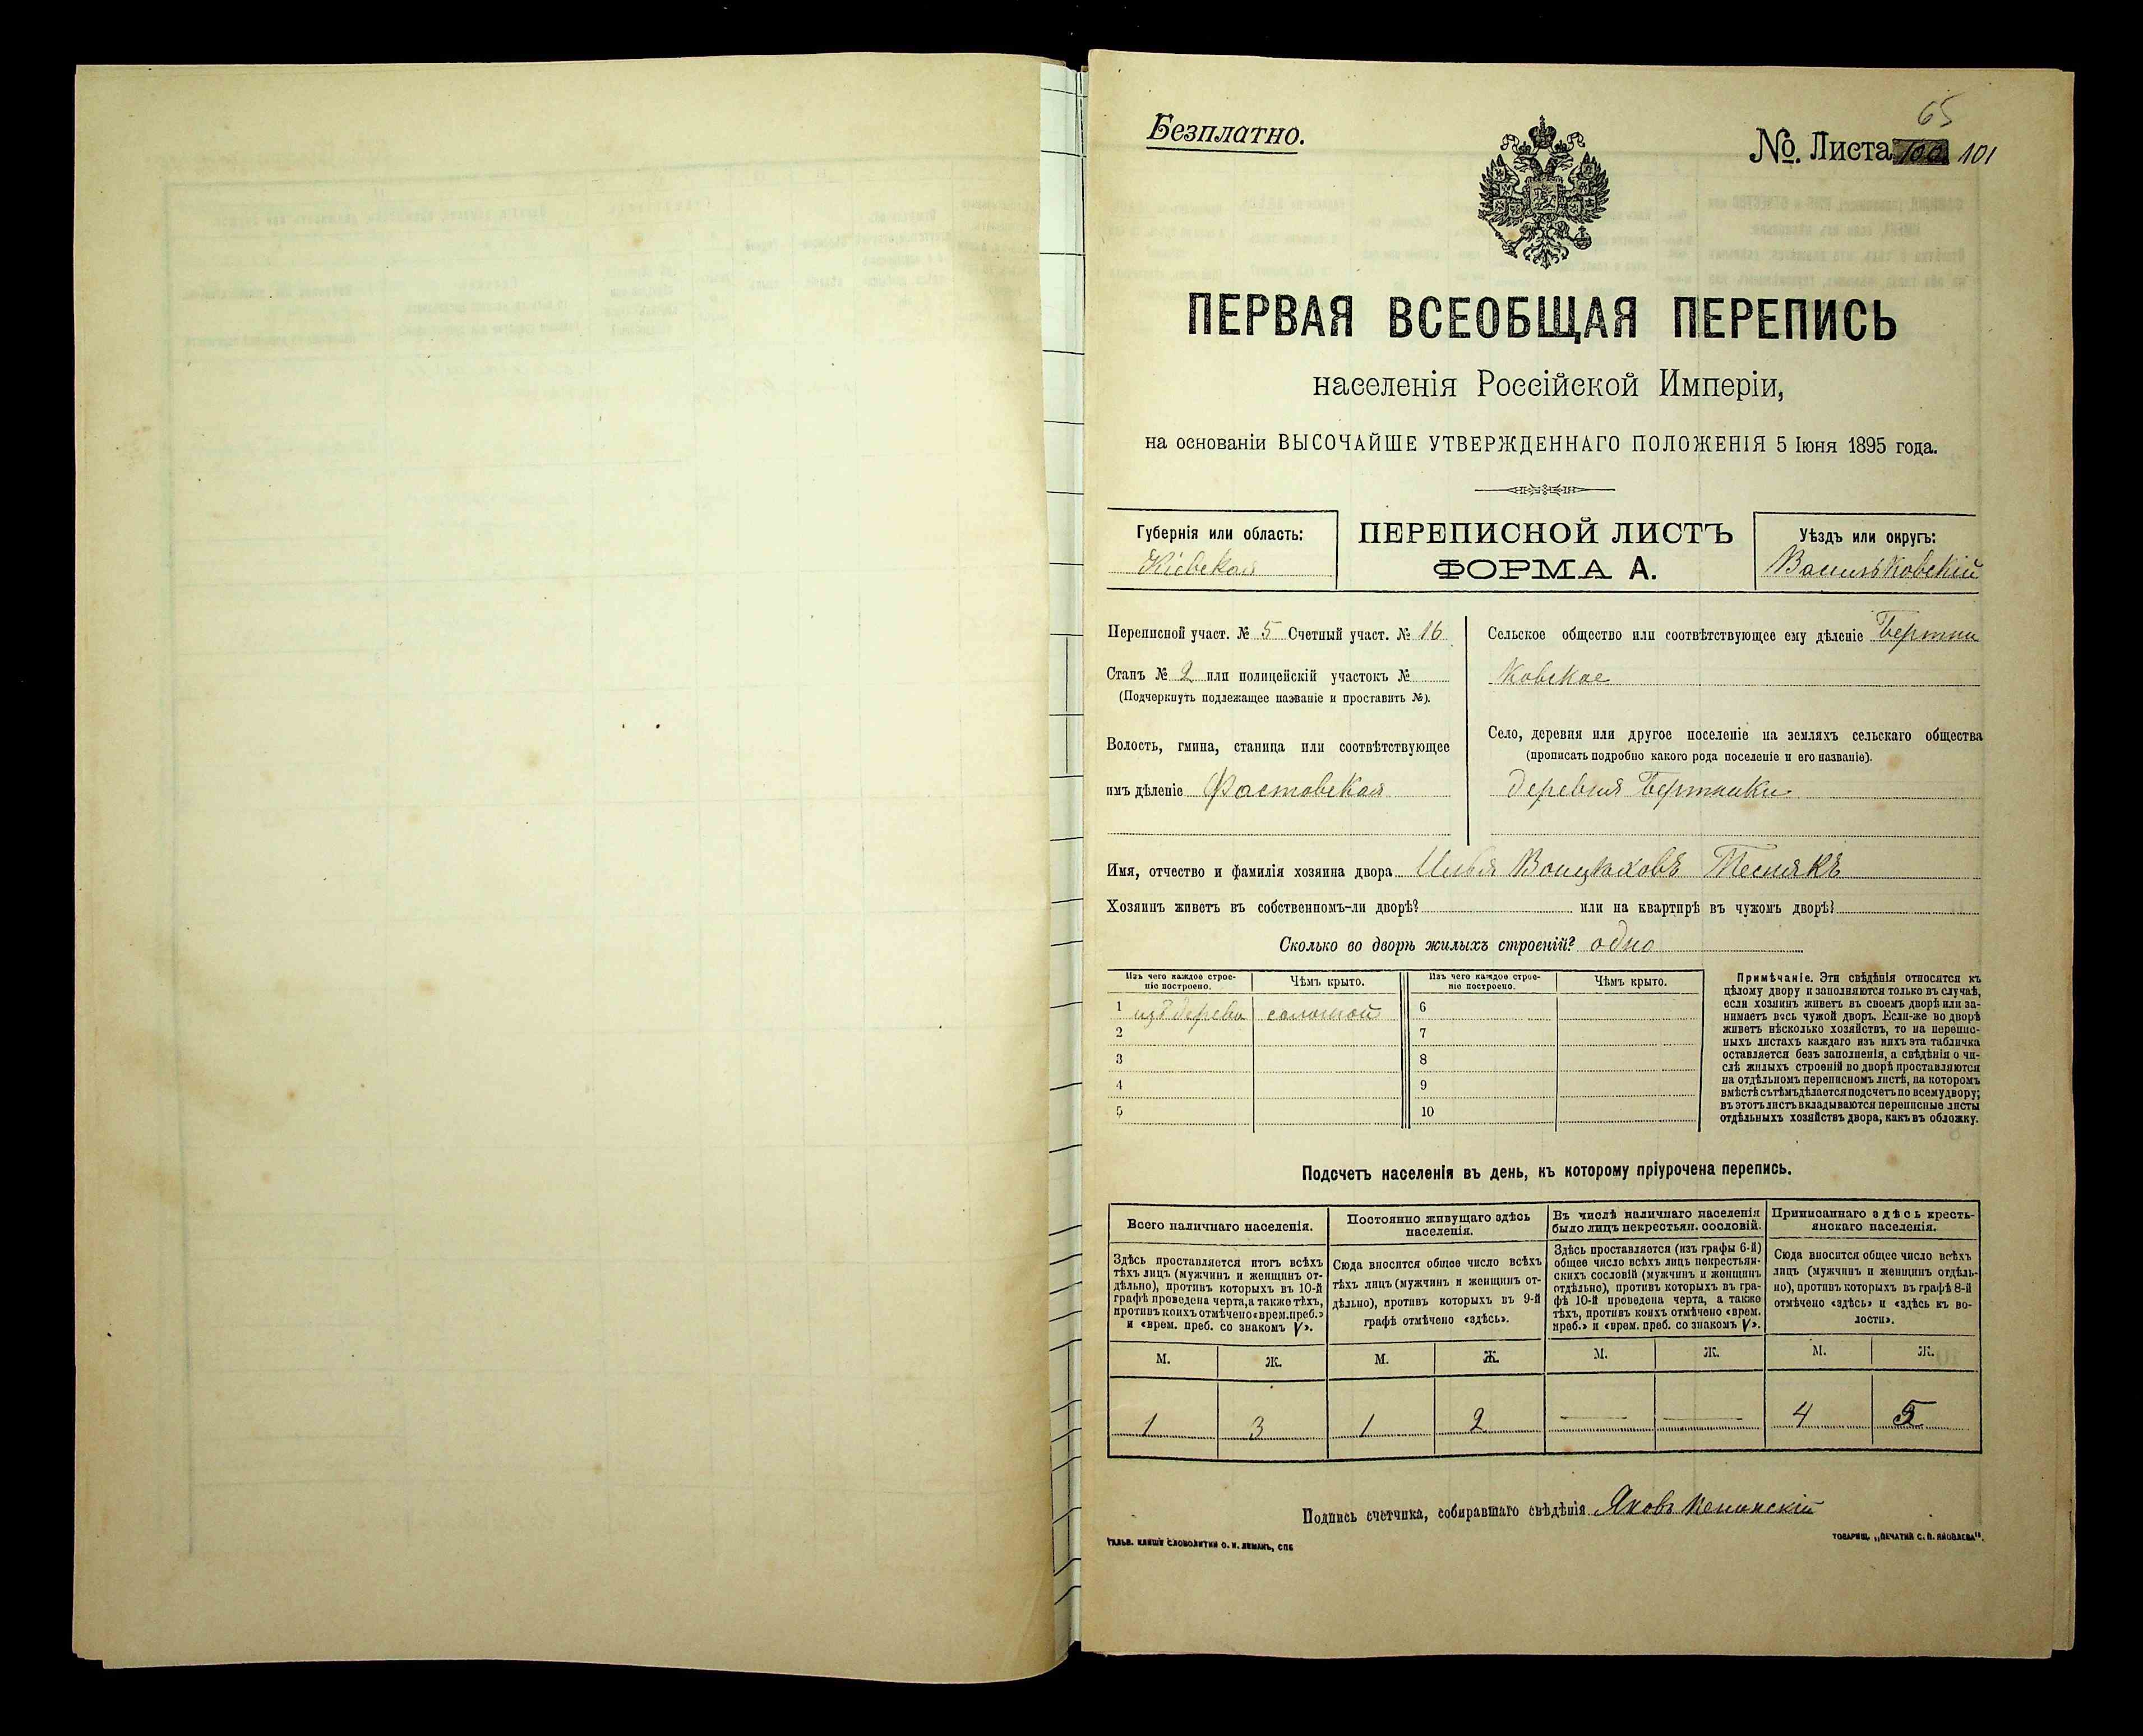 65
Безплатно.
№. Листа 100 101
ПЕРВАЯ ВСЕОБЩАЯ ПЕРЕПИСЬ
населенія Россійской Имперіи,
на основаніи ВЫСОЧАЙШЕ УТВЕРЖДЕННАГО ПОЛОЖЕНІЯ 5 Іюня 1895 года.
Губернія или область:
Кіевская
ПЕРЕПИСНОЙ ЛИСТЪ
ФОРМА А.
Уѣздъ или округъ:
Васильковскій
Переписной участ. № 5 Счетный участ. № 16
Станъ № 2 или полицейскій участокъ №
(Подчеркнуть подлежащее названіе и проставить №).
Волость, гмина, станица или соотвѣтствующее
имъ дѣленіе Фастовская
Сельское общество или соотвѣтствующее ему дѣленіе Бертни
ковское
Село, деревня или другое поселеніе на земляхъ сельскаго общества
(прописать подробно какого рода поселеніе и его названіе).
деревня Бертники
Имя, отчество и фамилія хозяина двора Илья Войцѣховъ Теснякъ
Хозяинъ живетъ въ собственномъ-ли дворѣ? или на квартирѣ въ чужомъ дворѣ?
Сколько во дворѣ жилыхъ строеній? одно
Изъ чего каждое строе-
ніе построено.
Чѣмъ крыто.
Изъ чего каждое строе-
ніе построено.
Чѣмъ крыто.
1 изъ дерева соломой 6
2 7
3 8
4 9
5 10
Примѣчаніе. Эти свѣдѣнія относятся къ
цѣлому двору и заполняются только въ случаѣ,
если хозяинъ живетъ въ своемъ дворѣ или за-
нимаетъ весь чужой дворъ. Если-же во дворѣ
живетъ нѣсколько хозяйствъ, то на перепис-
ныхъ листахъ каждаго изъ нихъ эта табличка
оставляется безъ заполненія, а свѣдѣнія о чи-
слѣ жилыхъ строеній во дворѣ проставляются
на отдѣльномъ переписномъ листѣ, на которомъ
вмѣстѣ съ тѣмъ дѣлается подсчетъ по всему двору;
въ этотъ листъ вкладываются переписные листы
отдѣльныхъ хозяйствъ двора, какъ въ обложку.
Подсчетъ населенія въ день, къ которому пріурочена перепись.
Всего наличнаго населенія.
Здѣсь проставляется итогъ всѣхъ
тѣхъ лицъ (мужчинъ и женщинъ от-
дѣльно), противъ которыхъ въ 10-й
графѣ проведена черта, а также тѣхъ,
противъ коихъ отмѣчено «врем. преб.»
и «врем. преб. со знакомъ V».
Постоянно живущаго здѣсь
населенія.
Сюда вносится общее число всѣхъ
тѣхъ лицъ (мужчинъ и женщинъ от-
дѣльно), противъ которыхъ въ 9-й
графѣ отмѣчено «здѣсь».
Въ числѣ наличнаго населенія
было лицъ некрестьян. сословій.
Здѣсь проставляется (изъ графы 6-й)
общее число всѣхъ лицъ некрестьян-
скихъ сословій (мужчинъ и женщинъ
отдѣльно), противъ которыхъ въ гра-
фѣ 10-й проведена черта, а также
тѣхъ, противъ коихъ отмѣчено «врем.
преб.» и «врем. преб. со знакомъ V».
Приписаннаго здѣсь кресть-
янскаго населенія.
Сюда вносится общее число всѣхъ
лицъ (мужчинъ и женщинъ отдѣль-
но), противъ которыхъ въ графѣ 8-й
отмѣчено «здѣсь» и «здѣсь къ во-
лости».
М. Ж. М. Ж. М. Ж. М. Ж.
1 3 1 2 — — 4 5
Подпись счетчика, собиравшаго свѣдѣнія Яковъ
ГАЛЬВ. КЛИШЕ СЛОВОЛИТНИ О. И. ЛЕМАНЪ, СПБ
ТОВАРИЩ. „ПЕЧАТНЯ С. П. ЯКОВЛЕВА".